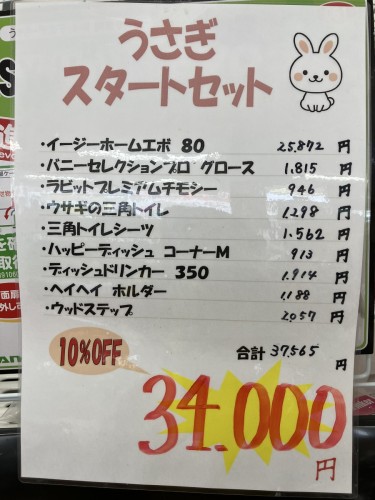 うさぎ
スタートセット
・イージーホームエボ 80 25,872 円
・バニーセレクションプロ グロース 1,815 円
・ラビットプレミアムチモシー 946 円
・ウサギの三角トイレ 1,298 円
・三角トイレシーツ 1,562 円
・ハッピーディッシュ コーナーM 913 円
・ディッシュドリンカー 350 1,914 円
・ヘイヘイ ホルダー 1,188 円
・ウッドステップ 2,057 円
合計 37,565 円
10%OFF
34,000
円